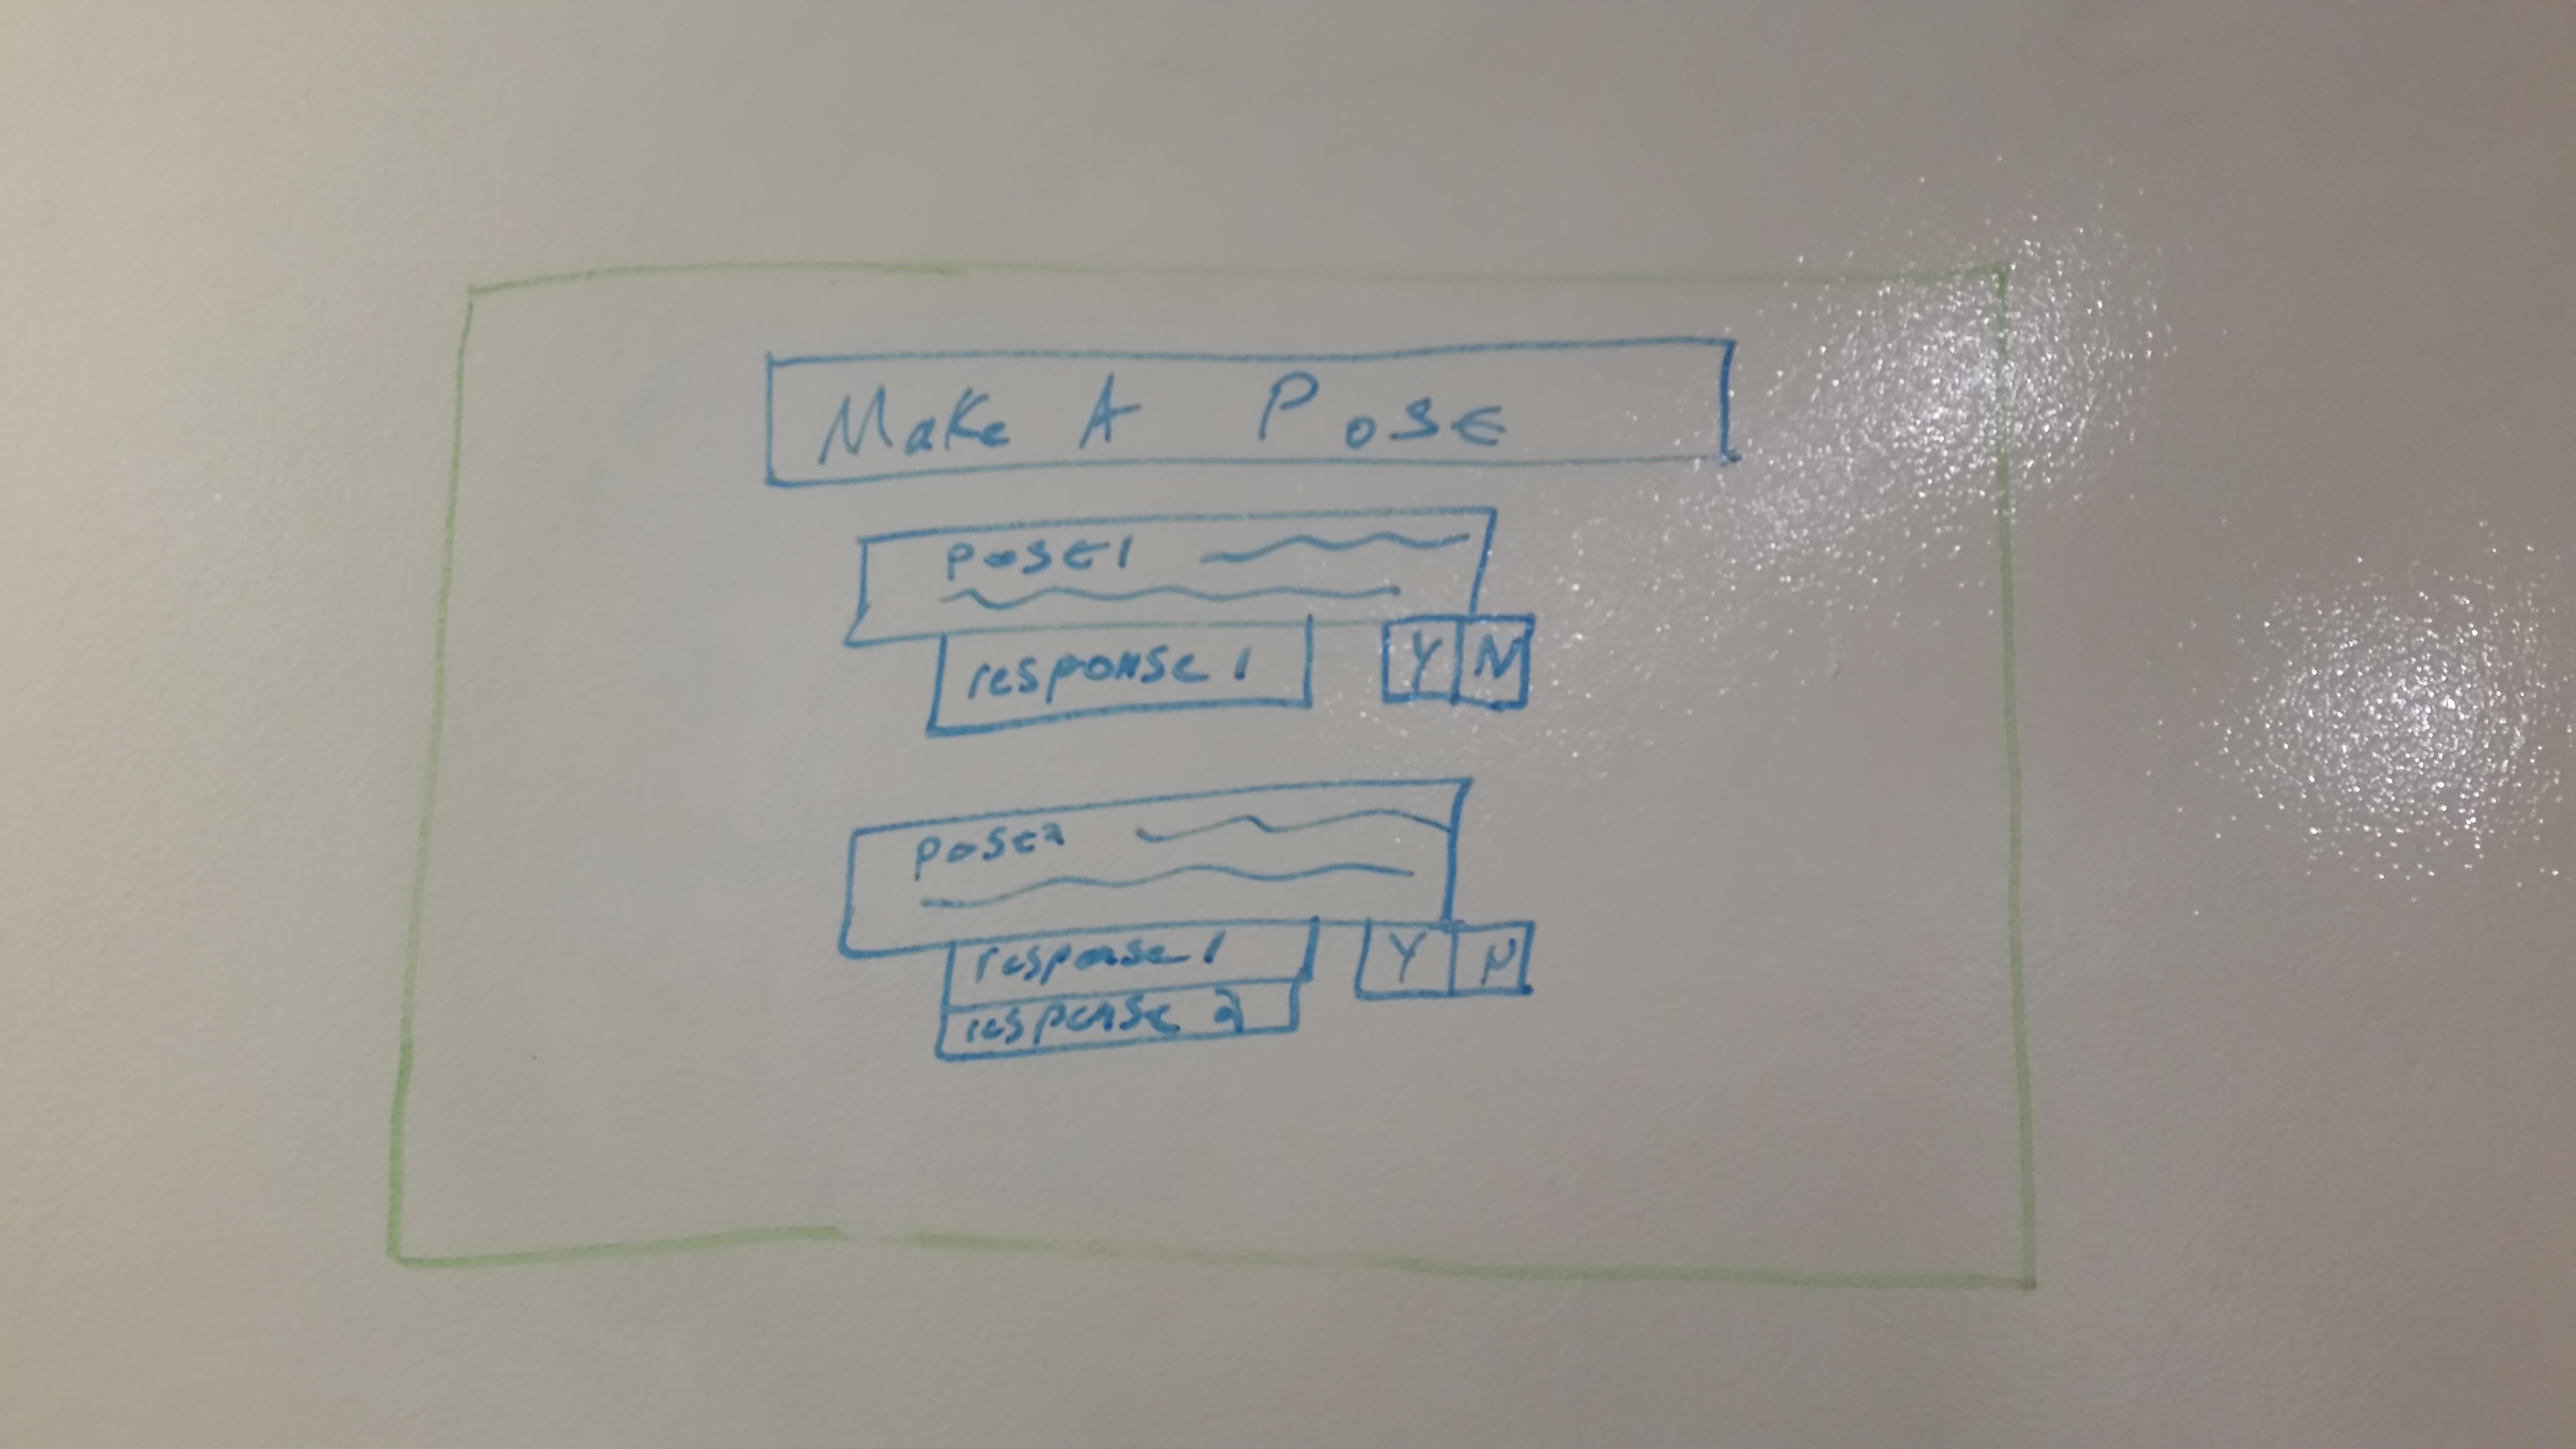 Make A Pose
Pose 1
response 1 Y N
Pose 2
response 1 Y N
response 2